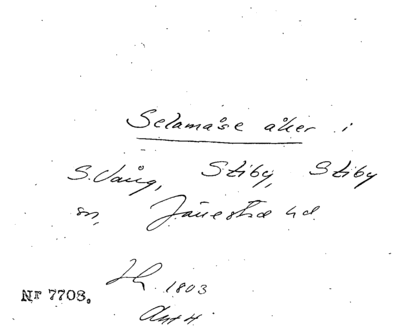 Selamåse åker i
S. Vång, Stiby, Stiby
sn, Järrestad hd.
1803
Akt 4.
Nr 7708.